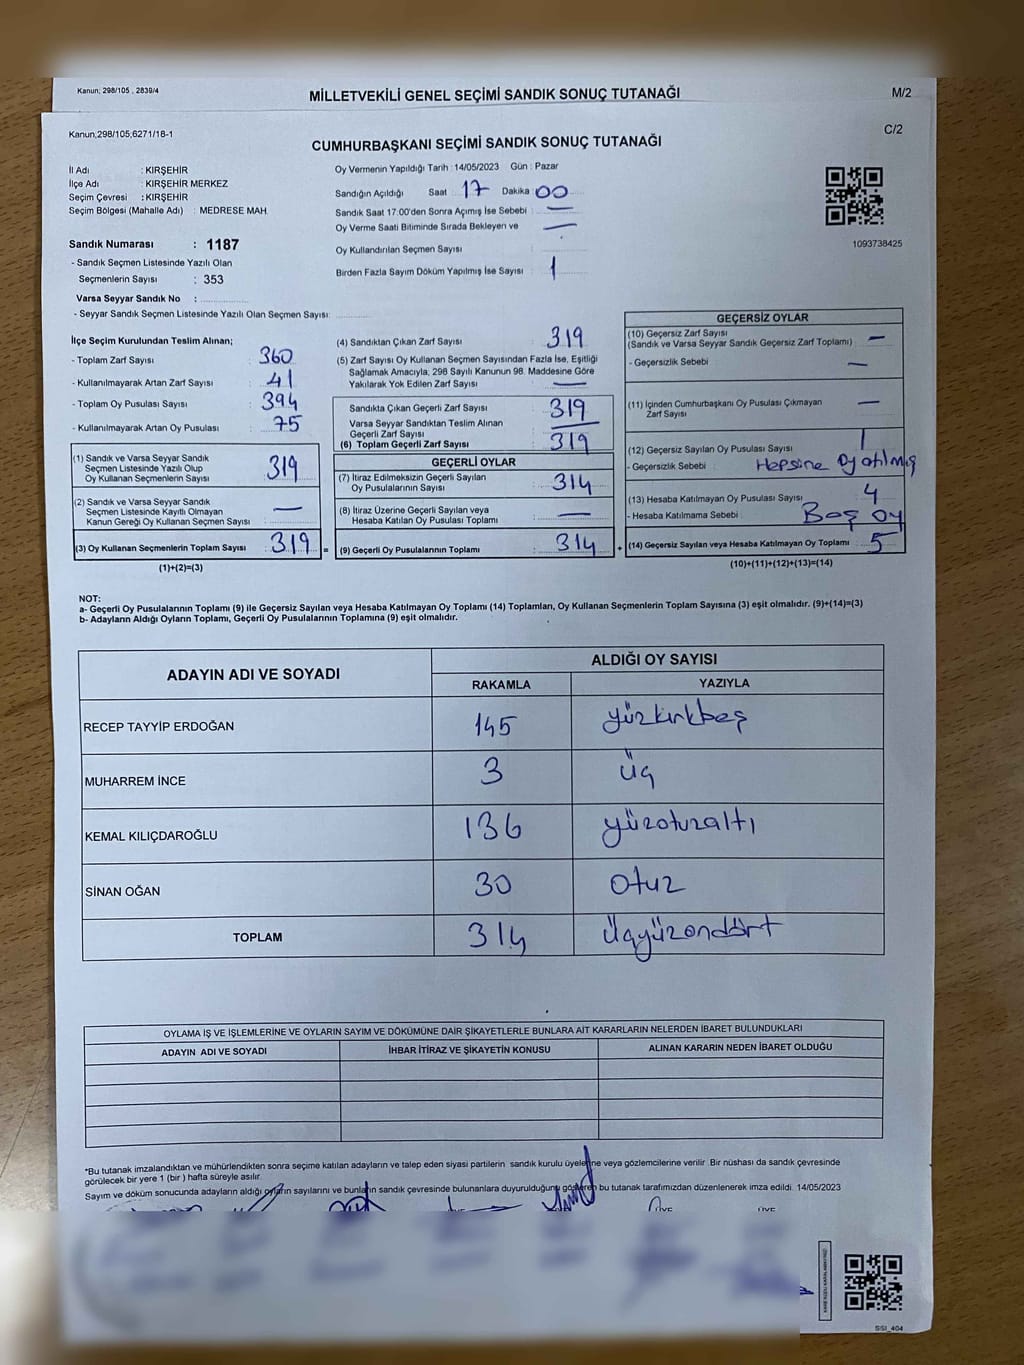 Kanun; 298/105 , 2839/4
MİLLETVEKİLİ GENEL SEÇİMİ SANDIK SONUÇ TUTANAĞI
M/2
Kanun;298/105;6271/18-1
C/2
CUMHURBAŞKANI SEÇİMİ SANDIK SONUÇ TUTANAĞI
İl Adı : KIRŞEHİR
İlçe Adı : KIRŞEHİR MERKEZ
Seçim Çevresi : KIRŞEHİR
Seçim Bölgesi (Mahalle Adı) : MEDRESE MAH.
Oy Vermenin Yapıldığı Tarih : 14/05/2023 Gün : Pazar
Sandığın Açıldığı Saat 17 Dakika 00
Sandık Saat 17:00'den Sonra Açımış İse Sebebi : —
Oy Verme Saati Bitiminde Sırada Bekleyen ve —
Oy Kullandırılan Seçmen Sayısı
Birden Fazla Sayım Döküm Yapılmış İse Sayısı 1
1093738425
Sandık Numarası : 1187
- Sandık Seçmen Listesinde Yazılı Olan
Seçmenlerin Sayısı : 353
Varsa Seyyar Sandık No :
- Seyyar Sandık Seçmen Listesinde Yazılı Olan Seçmen Sayısı:
İlçe Seçim Kurulundan Teslim Alınan;
- Toplam Zarf Sayısı 360
- Kullanılmayarak Artan Zarf Sayısı 41
- Toplam Oy Pusulası Sayısı 394
- Kullanılmayarak Artan Oy Pusulası 75
(1) Sandık ve Varsa Seyyar Sandık
Seçmen Listesinde Yazılı Olup
Oy Kullanan Seçmenlerin Sayısı 319
(2) Sandık ve Varsa Seyyar Sandık
Seçmen Listesinde Kayıtlı Olmayan
Kanun Gereği Oy Kullanan Seçmen Sayısı —
(3) Oy Kullanan Seçmenlerin Toplam Sayısı : 319 =
(1)+(2)=(3)
(4) Sandıktan Çıkan Zarf Sayısı 319
(5) Zarf Sayısı Oy Kullanan Seçmen Sayısından Fazla İse, Eşitliği
Sağlamak Amacıyla; 298 Sayılı Kanunun 98. Maddesine Göre
Yakılarak Yok Edilen Zarf Sayısı —
Sandıkta Çıkan Geçerli Zarf Sayısı 319
Varsa Seyyar Sandıktan Teslim Alınan
Geçerli Zarf Sayısı —
(6) Toplam Geçerli Zarf Sayısı 319
GEÇERLİ OYLAR
(7) İtiraz Edilmeksizin Geçerli Sayılan
Oy Pusulasının Sayısı 314
(8) İtiraz Üzerine Geçerli Sayılan veya
Hesaba Katılan Oy Pusulası Toplamı —
(9) Geçerli Oy Pusulalarının Toplamı : 314 +
GEÇERSİZ OYLAR
(10) Geçersiz Zarf Sayısı
(Sandık ve Varsa Seyyar Sandık Geçersiz Zarf Toplamı) —
- Geçersizlik Sebebi —
(11) İçinden Cumhurbaşkanı Oy Pusulası Çıkmayan
Zarf Sayısı —
(12) Geçersiz Sayılan Oy Pusulası Sayısı 1
- Geçersizlik Sebebi Hepsine Oy atılmış
(13) Hesaba Katılmayan Oy Pusulası Sayısı 4
- Hesaba Katılmama Sebebi : Boş Oy
(14) Geçersiz Sayılan veya Hesaba Katılmayan Oy Toplamı : 5
(10)+(11)+(12)+(13)=(14)
NOT:
a- Geçerli Oy Pusulalarının Toplamı (9) ile Geçersiz Sayılan veya Hesaba Katılmayan Oy Toplamı (14) Toplamları, Oy Kullanan Seçmenlerin Toplam Sayısına (3) eşit olmalıdır. (9)+(14)=(3)
b- Adayların Aldığı Oyların Toplamı, Geçerli Oy Pusulalarının Toplamına (9) eşit olmalıdır.
ADAYIN ADI VE SOYADI ALDIĞI OY SAYISI
RAKAMLA YAZIYLA
RECEP TAYYİP ERDOĞAN 145 yüzkırkbeş
MUHARREM İNCE 3 üç
KEMAL KILIÇDAROĞLU 136 yüzotuzaltı
SİNAN OĞAN 30 Otuz
TOPLAM 314 üçyüzondört
OYLAMA İŞ VE İŞLEMLERİNE VE OYLARIN SAYIM VE DÖKÜMÜNE DAİR ŞİKAYETLERLE BUNLARA AİT KARARLARIN NELERDEN İBARET BULUNDUKLARI
ADAYIN ADI VE SOYADI İHBAR İTİRAZ VE ŞİKAYETİN KONUSU ALINAN KARARIN NEDEN İBARET OLDUĞU
*Bu tutanak imzalandıktan ve mühürlendikten sonra seçime katılan adayların ve talep eden siyasi partilerin sandık kurulu üyelerine veya gözlemcilerine verilir. Bir nüshası da sandık çevresinde
görülecek bir yere 1 (bir) hafta süreyle asılır.
Sayım ve döküm sonucunda adayların aldığı oyların sayılarını ve bunların sandık çevresinde bulunanlara duyurulduğunu gösteren bu tutanak tarafımızdan düzenlenerek imza edildi. 14/05/2023
ÜYE ÜYE
SSI_404